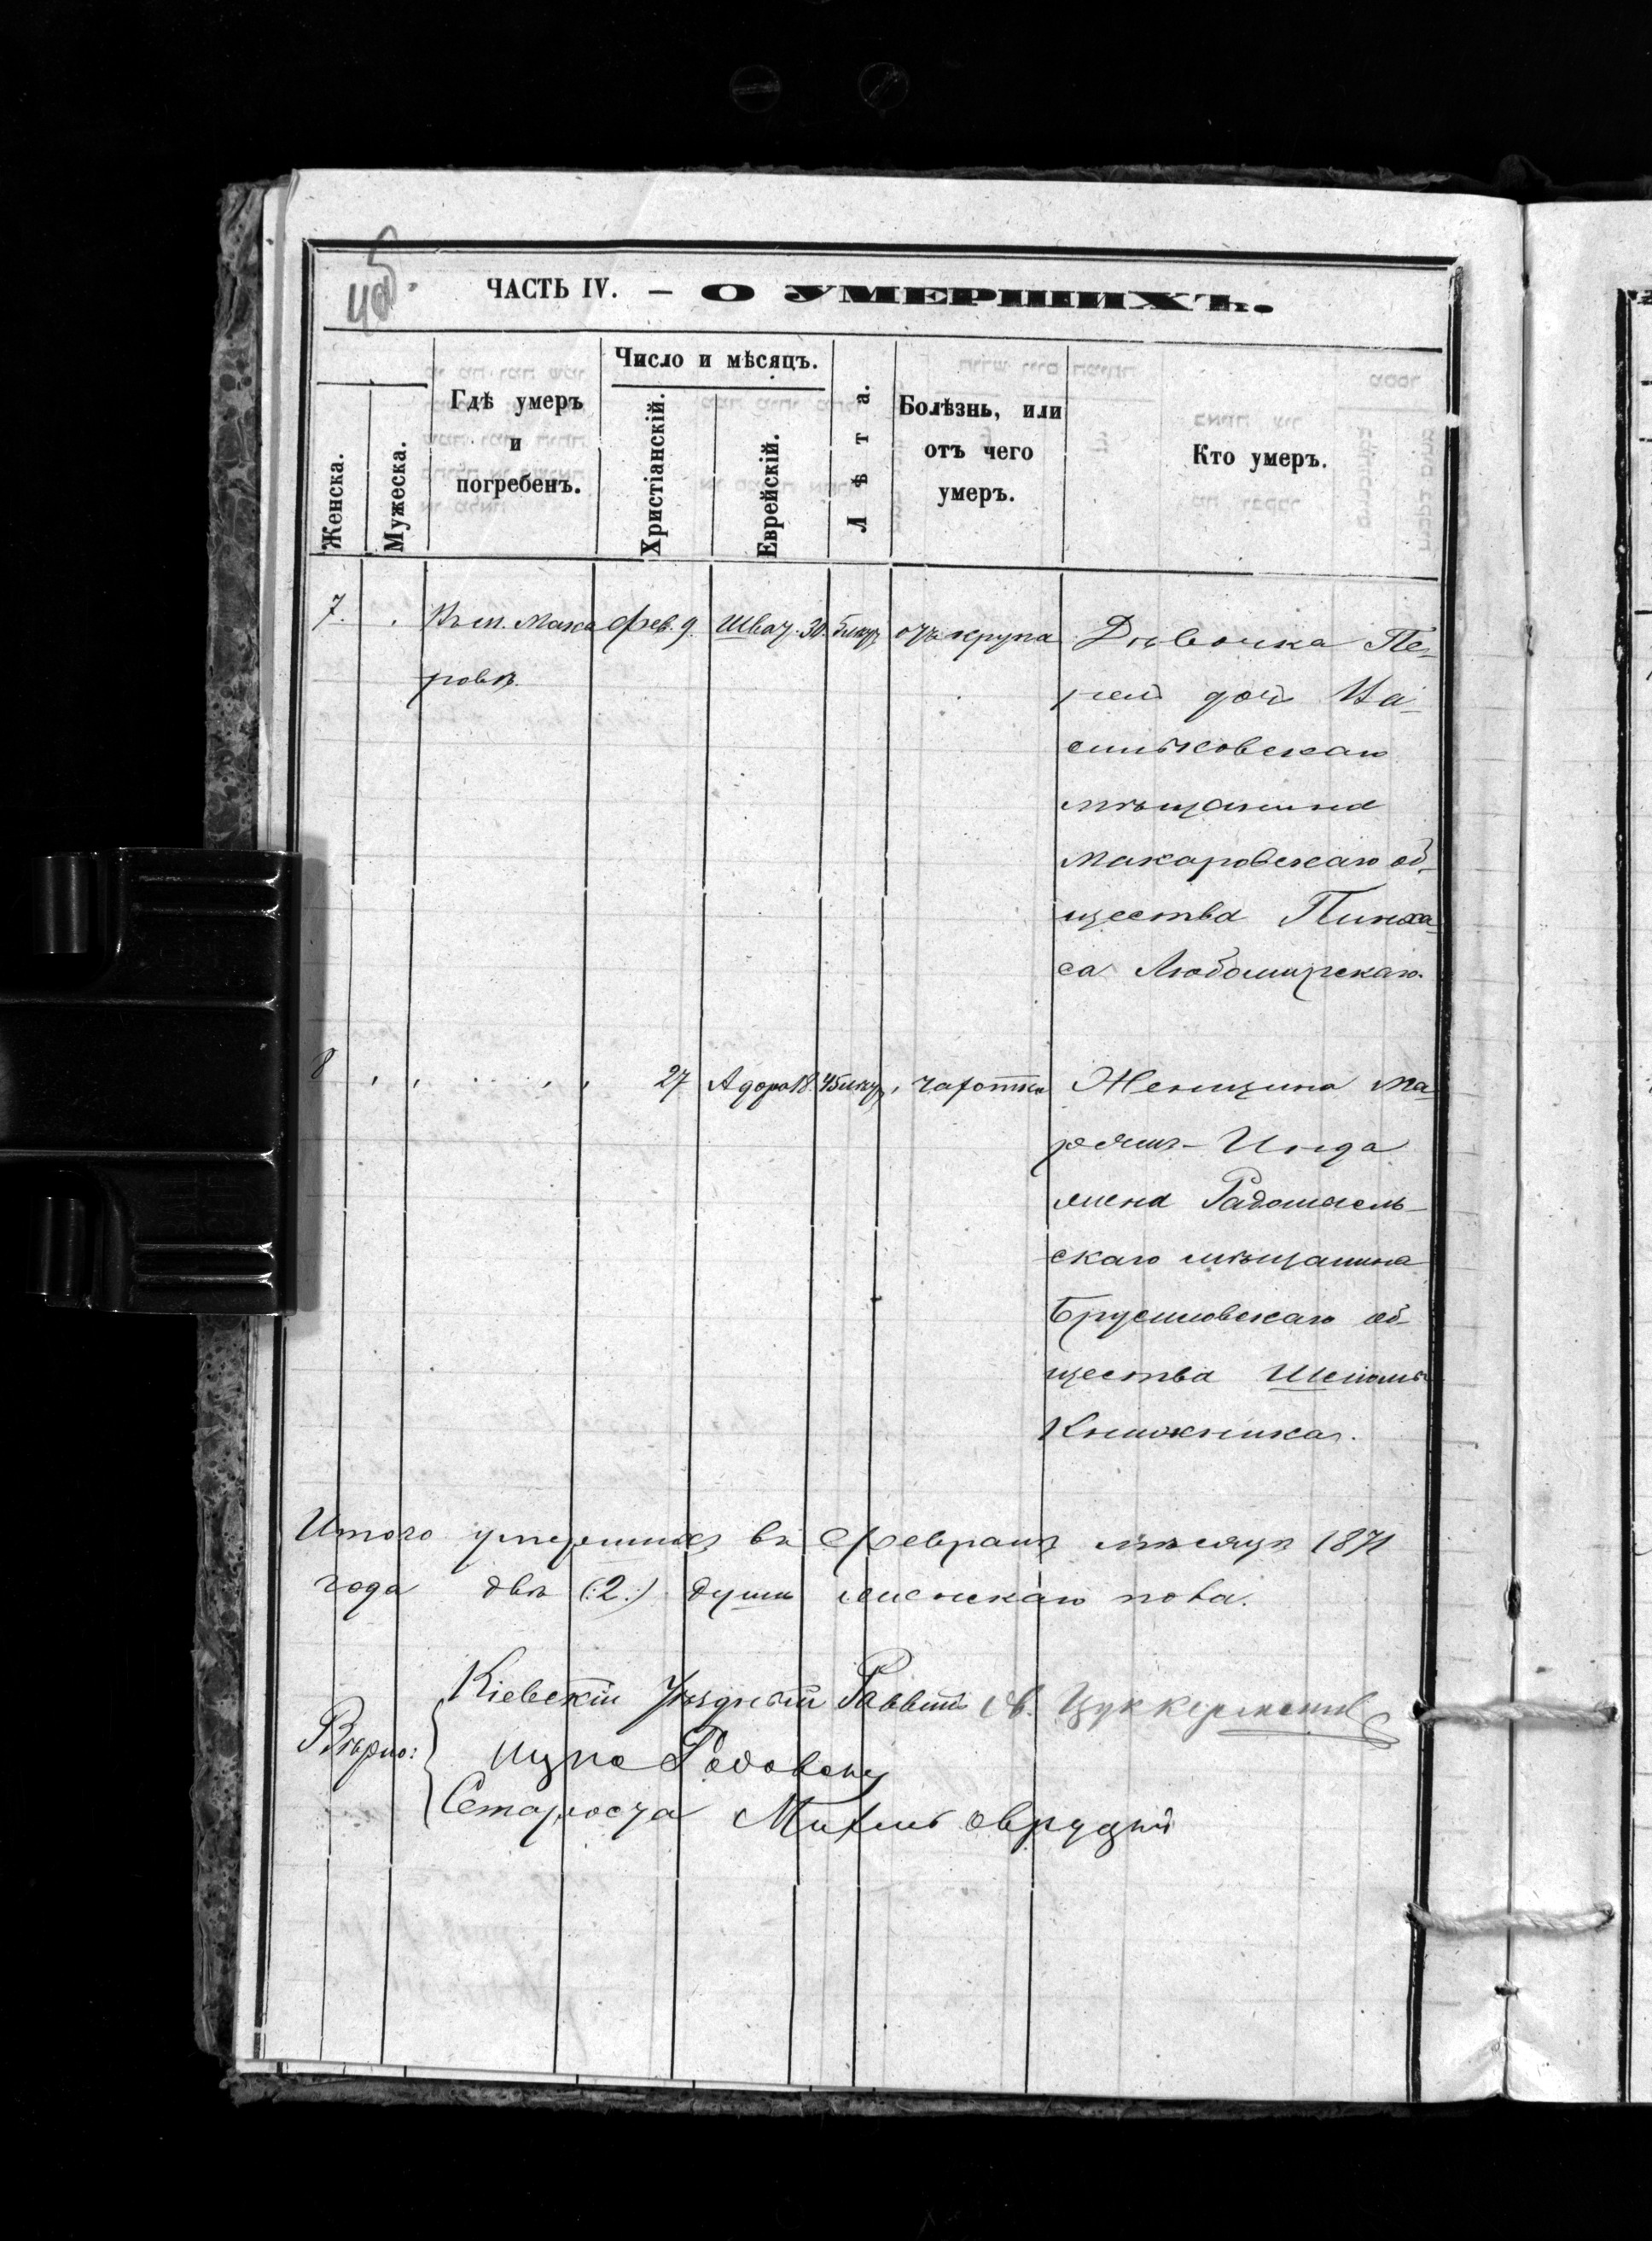 ЧАСТЬ IV. — О УМЕРШИХЪ.
Женска.
Мужеска.
Гдѣ умеръ
и
погребенъ.
Число и мѣсяцъ.
Христіанскій.
Еврейскій.
Лѣта.
Болѣзнь, или
отъ чего
умеръ.
Кто умеръ.
7. Въ м. Мака Фев. 9. Шват. 30. отъ крупа Дѣвочка Пе-
ровѣ. рель доч Ва-
сильковскаго
мѣщанина
Макаровскаго об-
щества Пинха-
са Любомирскаго.
8 27 Адора 18. чахотки Женщина Ма
жена Радомысль-
скаго мѣщанина
Брусиловскаго об-
щества
Книжника.
Итого умершихъ въ Февралѣ мѣсяцѣ 1871
года двѣ (:2:) души женскаго пола.
Кіевскій Уѣздный Раввинъ Цуккерманъ
Вѣрно:
Староста Михель Овруцкій